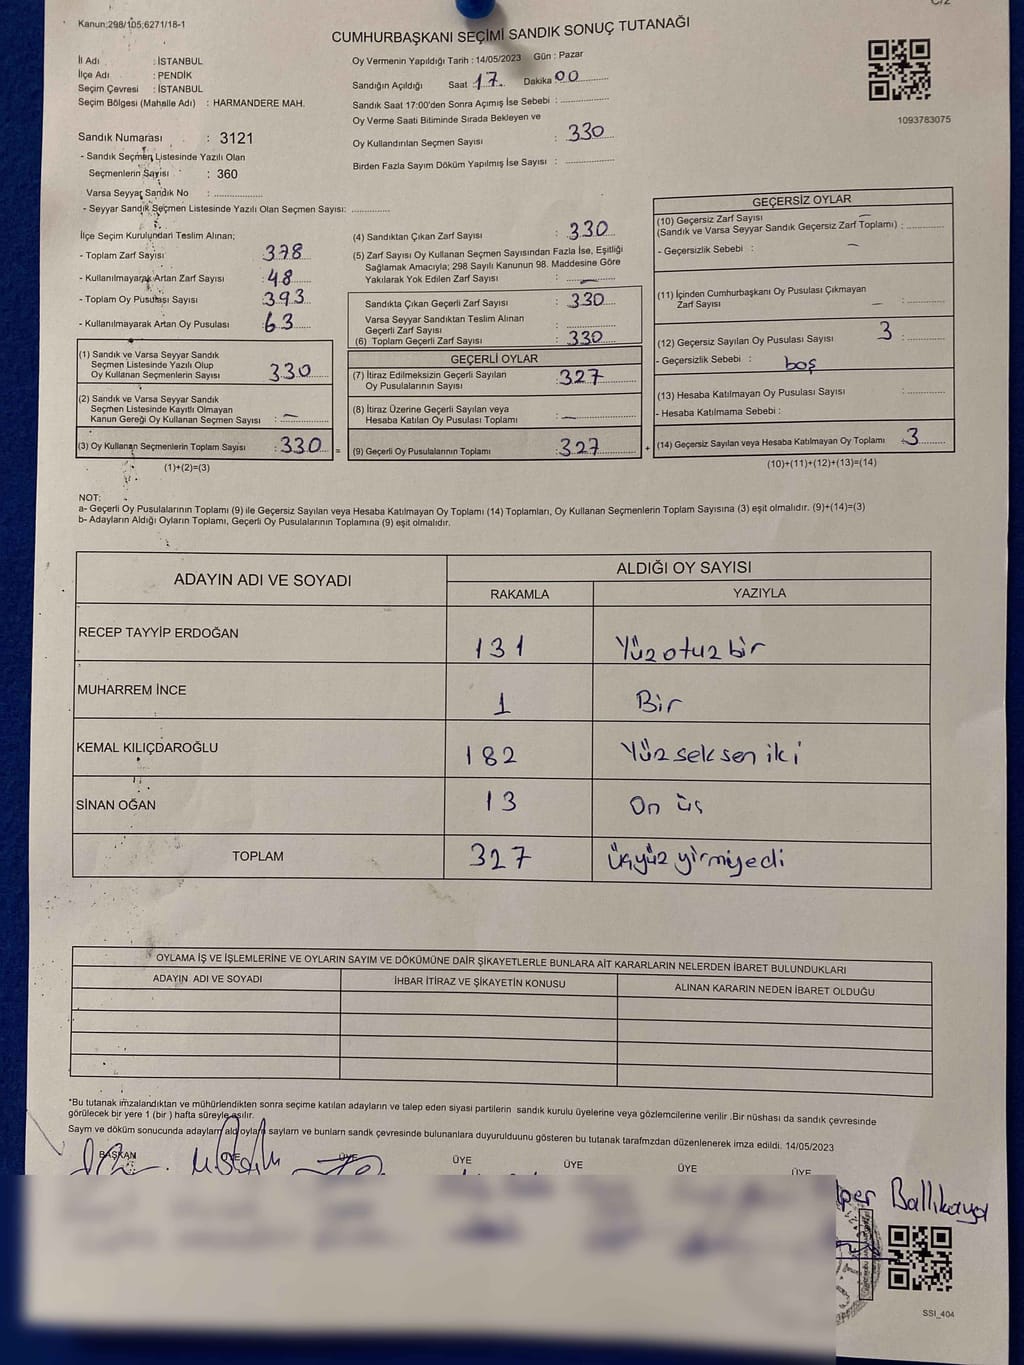 C/2
Kanun:298/105;6271/18-1
CUMHURBAŞKANI SEÇİMİ SANDIK SONUÇ TUTANAĞI
İl Adı : İSTANBUL
İlçe Adı : PENDİK
Seçim Çevresi : İSTANBUL
Seçim Bölgesi (Mahalle Adı) : HARMANDERE MAH.
Sandık Numarası : 3121
- Sandık Seçmen Listesinde Yazılı Olan
Seçmenlerin Sayısı : 360
Varsa Seyyar Sandık No : ................
- Seyyar Sandık Seçmen Listesinde Yazılı Olan Seçmen Sayısı: .............
Oy Vermenin Yapıldığı Tarih : 14/05/2023 Gün : Pazar
Sandığın Açıldığı Saat 17 Dakika 00
Sandık Saat 17:00'den Sonra Açımış İse Sebebi : ................
Oy Verme Saati Bitiminde Sırada Bekleyen ve
Oy Kullandırılan Seçmen Sayısı : 330
Birden Fazla Sayım Döküm Yapılmış İse Sayısı : ................
1093783075
İlçe Seçim Kurulundan Teslim Alınan;
- Toplam Zarf Sayısı : 378
- Kullanılmayarak Artan Zarf Sayısı : 48
- Toplam Oy Pusulası Sayısı : 393
- Kullanılmayarak Artan Oy Pusulası : 63
(1) Sandık ve Varsa Seyyar Sandık
Seçmen Listesinde Yazılı Olup
Oy Kullanan Seçmenlerin Sayısı : 330
(2) Sandık ve Varsa Seyyar Sandık
Seçmen Listesinde Kayıtlı Olmayan
Kanun Gereği Oy Kullanan Seçmen Sayısı : —
(3) Oy Kullanan Seçmenlerin Toplam Sayısı : 330 =
(1)+(2)=(3)
(4) Sandıktan Çıkan Zarf Sayısı : 330
(5) Zarf Sayısı Oy Kullanan Seçmen Sayısından Fazla İse, Eşitliği
Sağlamak Amacıyla; 298 Sayılı Kanunun 98. Maddesine Göre
Yakılarak Yok Edilen Zarf Sayısı : —
Sandıkta Çıkan Geçerli Zarf Sayısı : 330
Varsa Seyyar Sandıktan Teslim Alınan
Geçerli Zarf Sayısı : ................
(6) Toplam Geçerli Zarf Sayısı : 330
GEÇERLİ OYLAR
(7) İtiraz Edilmeksizin Geçerli Sayılan
Oy Pusulalarının Sayısı : 327
(8) İtiraz Üzerine Geçerli Sayılan veya
Hesaba Katılan Oy Pusulası Toplamı : —
(9) Geçerli Oy Pusulalarının Toplamı : 327 +
GEÇERSİZ OYLAR
(10) Geçersiz Zarf Sayısı —
(Sandık ve Varsa Seyyar Sandık Geçersiz Zarf Toplamı) : ............
- Geçersizlik Sebebi : —
(11) İçinden Cumhurbaşkanı Oy Pusulası Çıkmayan
Zarf Sayısı — : ............
(12) Geçersiz Sayılan Oy Pusulası Sayısı 3 : ............
- Geçersizlik Sebebi : boş
(13) Hesaba Katılmayan Oy Pusulası Sayısı : ............
- Hesaba Katılmama Sebebi :
(14) Geçersiz Sayılan veya Hesaba Katılmayan Oy Toplamı : 3
(10)+(11)+(12)+(13)=(14)
NOT:
a- Geçerli Oy Pusulalarının Toplamı (9) ile Geçersiz Sayılan veya Hesaba Katılmayan Oy Toplamı (14) Toplamları, Oy Kullanan Seçmenlerin Toplam Sayısına (3) eşit olmalıdır. (9)+(14)=(3)
b- Adayların Aldığı Oyların Toplamı, Geçerli Oy Pusulalarının Toplamına (9) eşit olmalıdır.
ADAYIN ADI VE SOYADI ALDIĞI OY SAYISI
RAKAMLA YAZIYLA
RECEP TAYYİP ERDOĞAN 131 Yüz otuz bir
MUHARREM İNCE 1 Bir
KEMAL KILIÇDAROĞLU 182 Yüz seksen iki
SİNAN OĞAN 13 On üç
TOPLAM 327 üçyüz yirmiyedi
OYLAMA İŞ VE İŞLEMLERİNE VE OYLARIN SAYIM VE DÖKÜMÜNE DAİR ŞİKAYETLERLE BUNLARA AİT KARARLARIN NELERDEN İBARET BULUNDUKLARI
ADAYIN ADI VE SOYADI İHBAR İTİRAZ VE ŞİKAYETİN KONUSU ALINAN KARARIN NEDEN İBARET OLDUĞU
*Bu tutanak imzalandıktan ve mühürlendikten sonra seçime katılan adayların ve talep eden siyasi partilerin sandık kurulu üyelerine veya gözlemcilerine verilir .Bir nüshası da sandık çevresinde
görülecek bir yere 1 (bir ) hafta süreyle asılır.
Sayım ve döküm sonucunda adayların aldı oyların sayların ve bunların sandk çevresinde bulunanlara duyurulduunu gösteren bu tutanak tarafmzdan düzenlenerek imza edildi. 14/05/2023
BAŞKAN ÜYE ÜYE ÜYE ÜYE ÜYE ÜYE
Ballıkaya
SSI_404